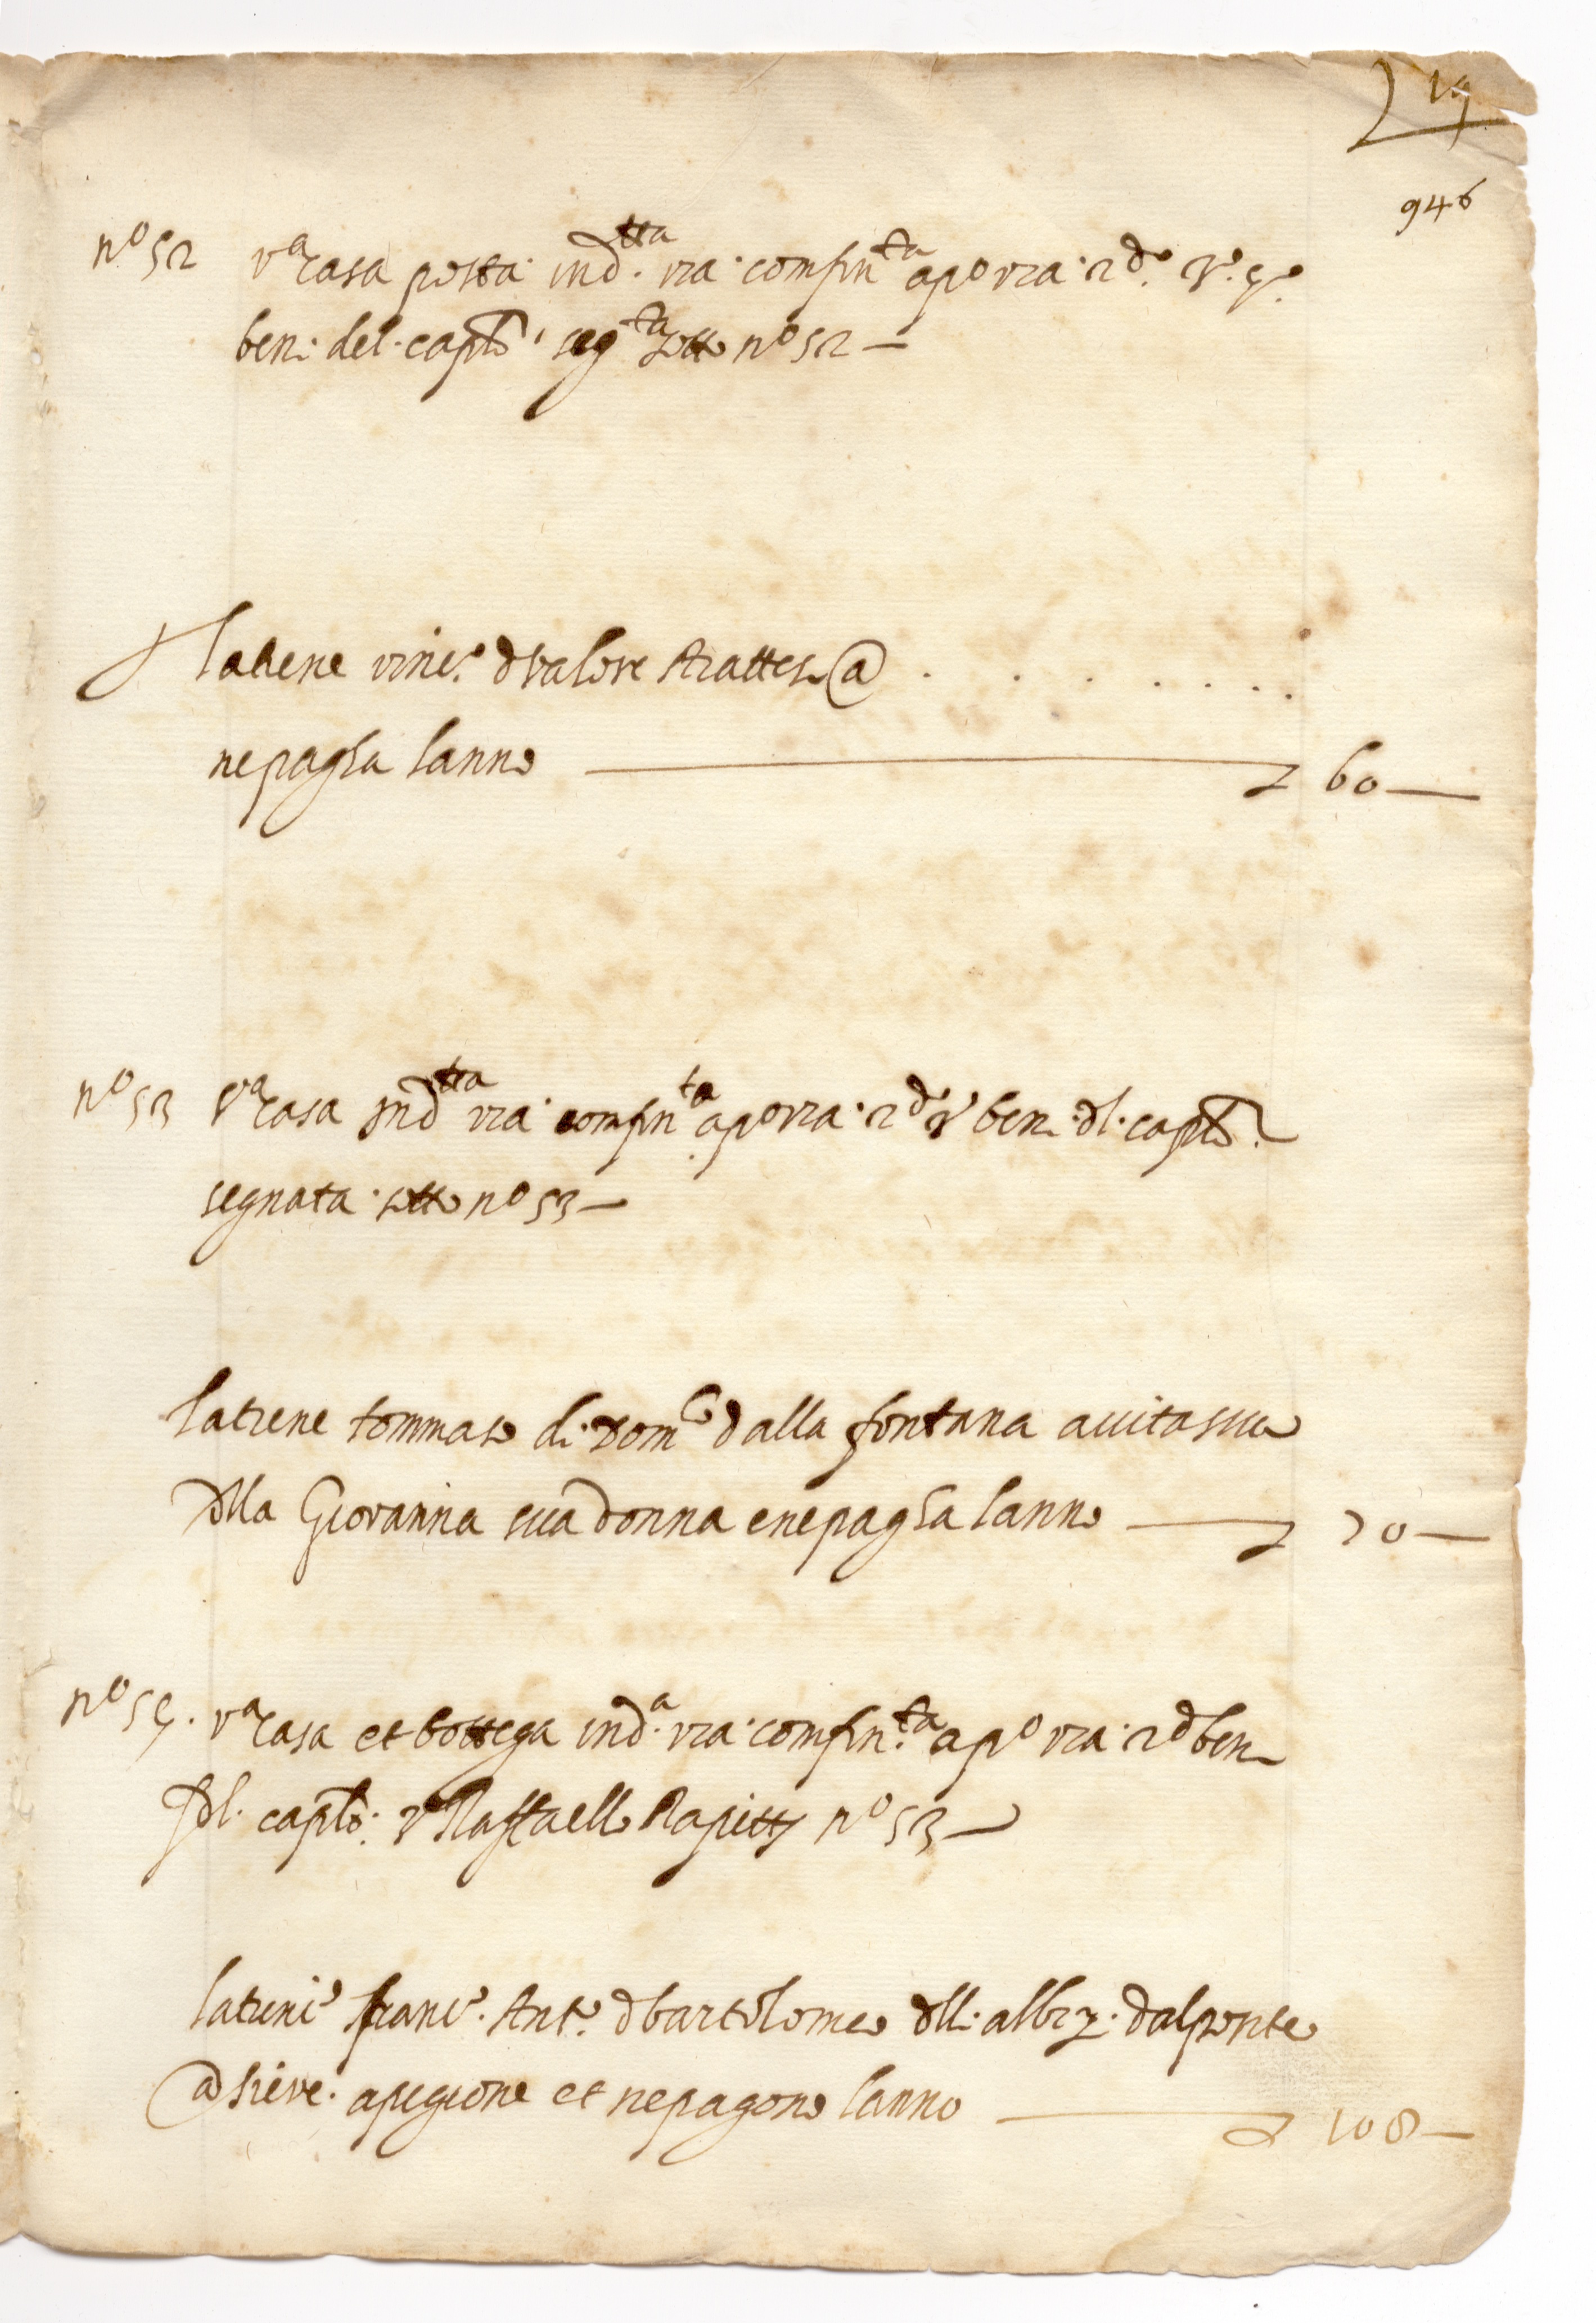 19
946
n.o 52 v.a casa posta in d.tta via confin.ta a p.o via 2.do 3.o 4.o
beni del capto seg.ta sotto n.o 52 —
la tiene vinc.o d valore trattes @ . . . . . . .
ne pagha lanno — 60 —
n.o 53 v.a casa in d.tta via confin.ta a p.o via 2.d 3.o beni dl capto
segnata sotto n.o 53 —
la tiene tommaso di dom.co dalla fontana a vita sua
della Giovanna sua donna e ne pagha lanno — 70 —
n.o 54. v.a casa et bottega in d.a via confin.ta a p.o via 2.d beni
del capto 3.o Raffaello Rapitti n.o 53 —
la tiene franc.o Ant.o d bartolomeo delli albizi dal ponte
a sieve a pigione et ne pagono lanno — 108 —